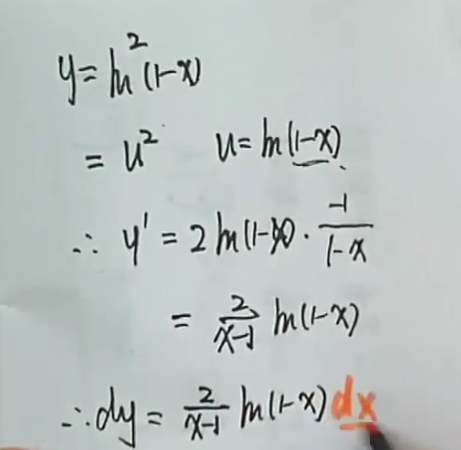 y = ln²(1-x)
= u² u = ln(1-x).
∴ y' = 2 ln(1-x) · -1/(1-x)
= 2/(x-1) ln(1-x)
∴ dy = 2/(x-1) ln(1-x) dx